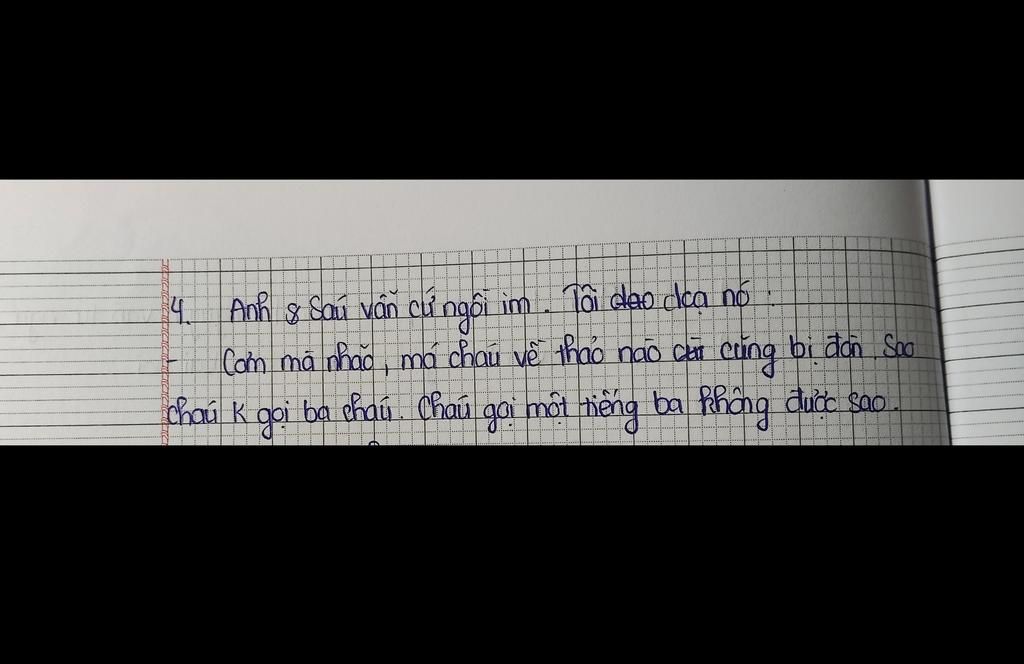 4. Anh 8 Sáu vẫn cứ ngồi im. Tôi dọa nó :
- Cơm mà nhão, má cháu về thảo nào cũng bị đòn. Sao
cháu K gọi ba cháu. Cháu gọi một tiếng ba không được sao.